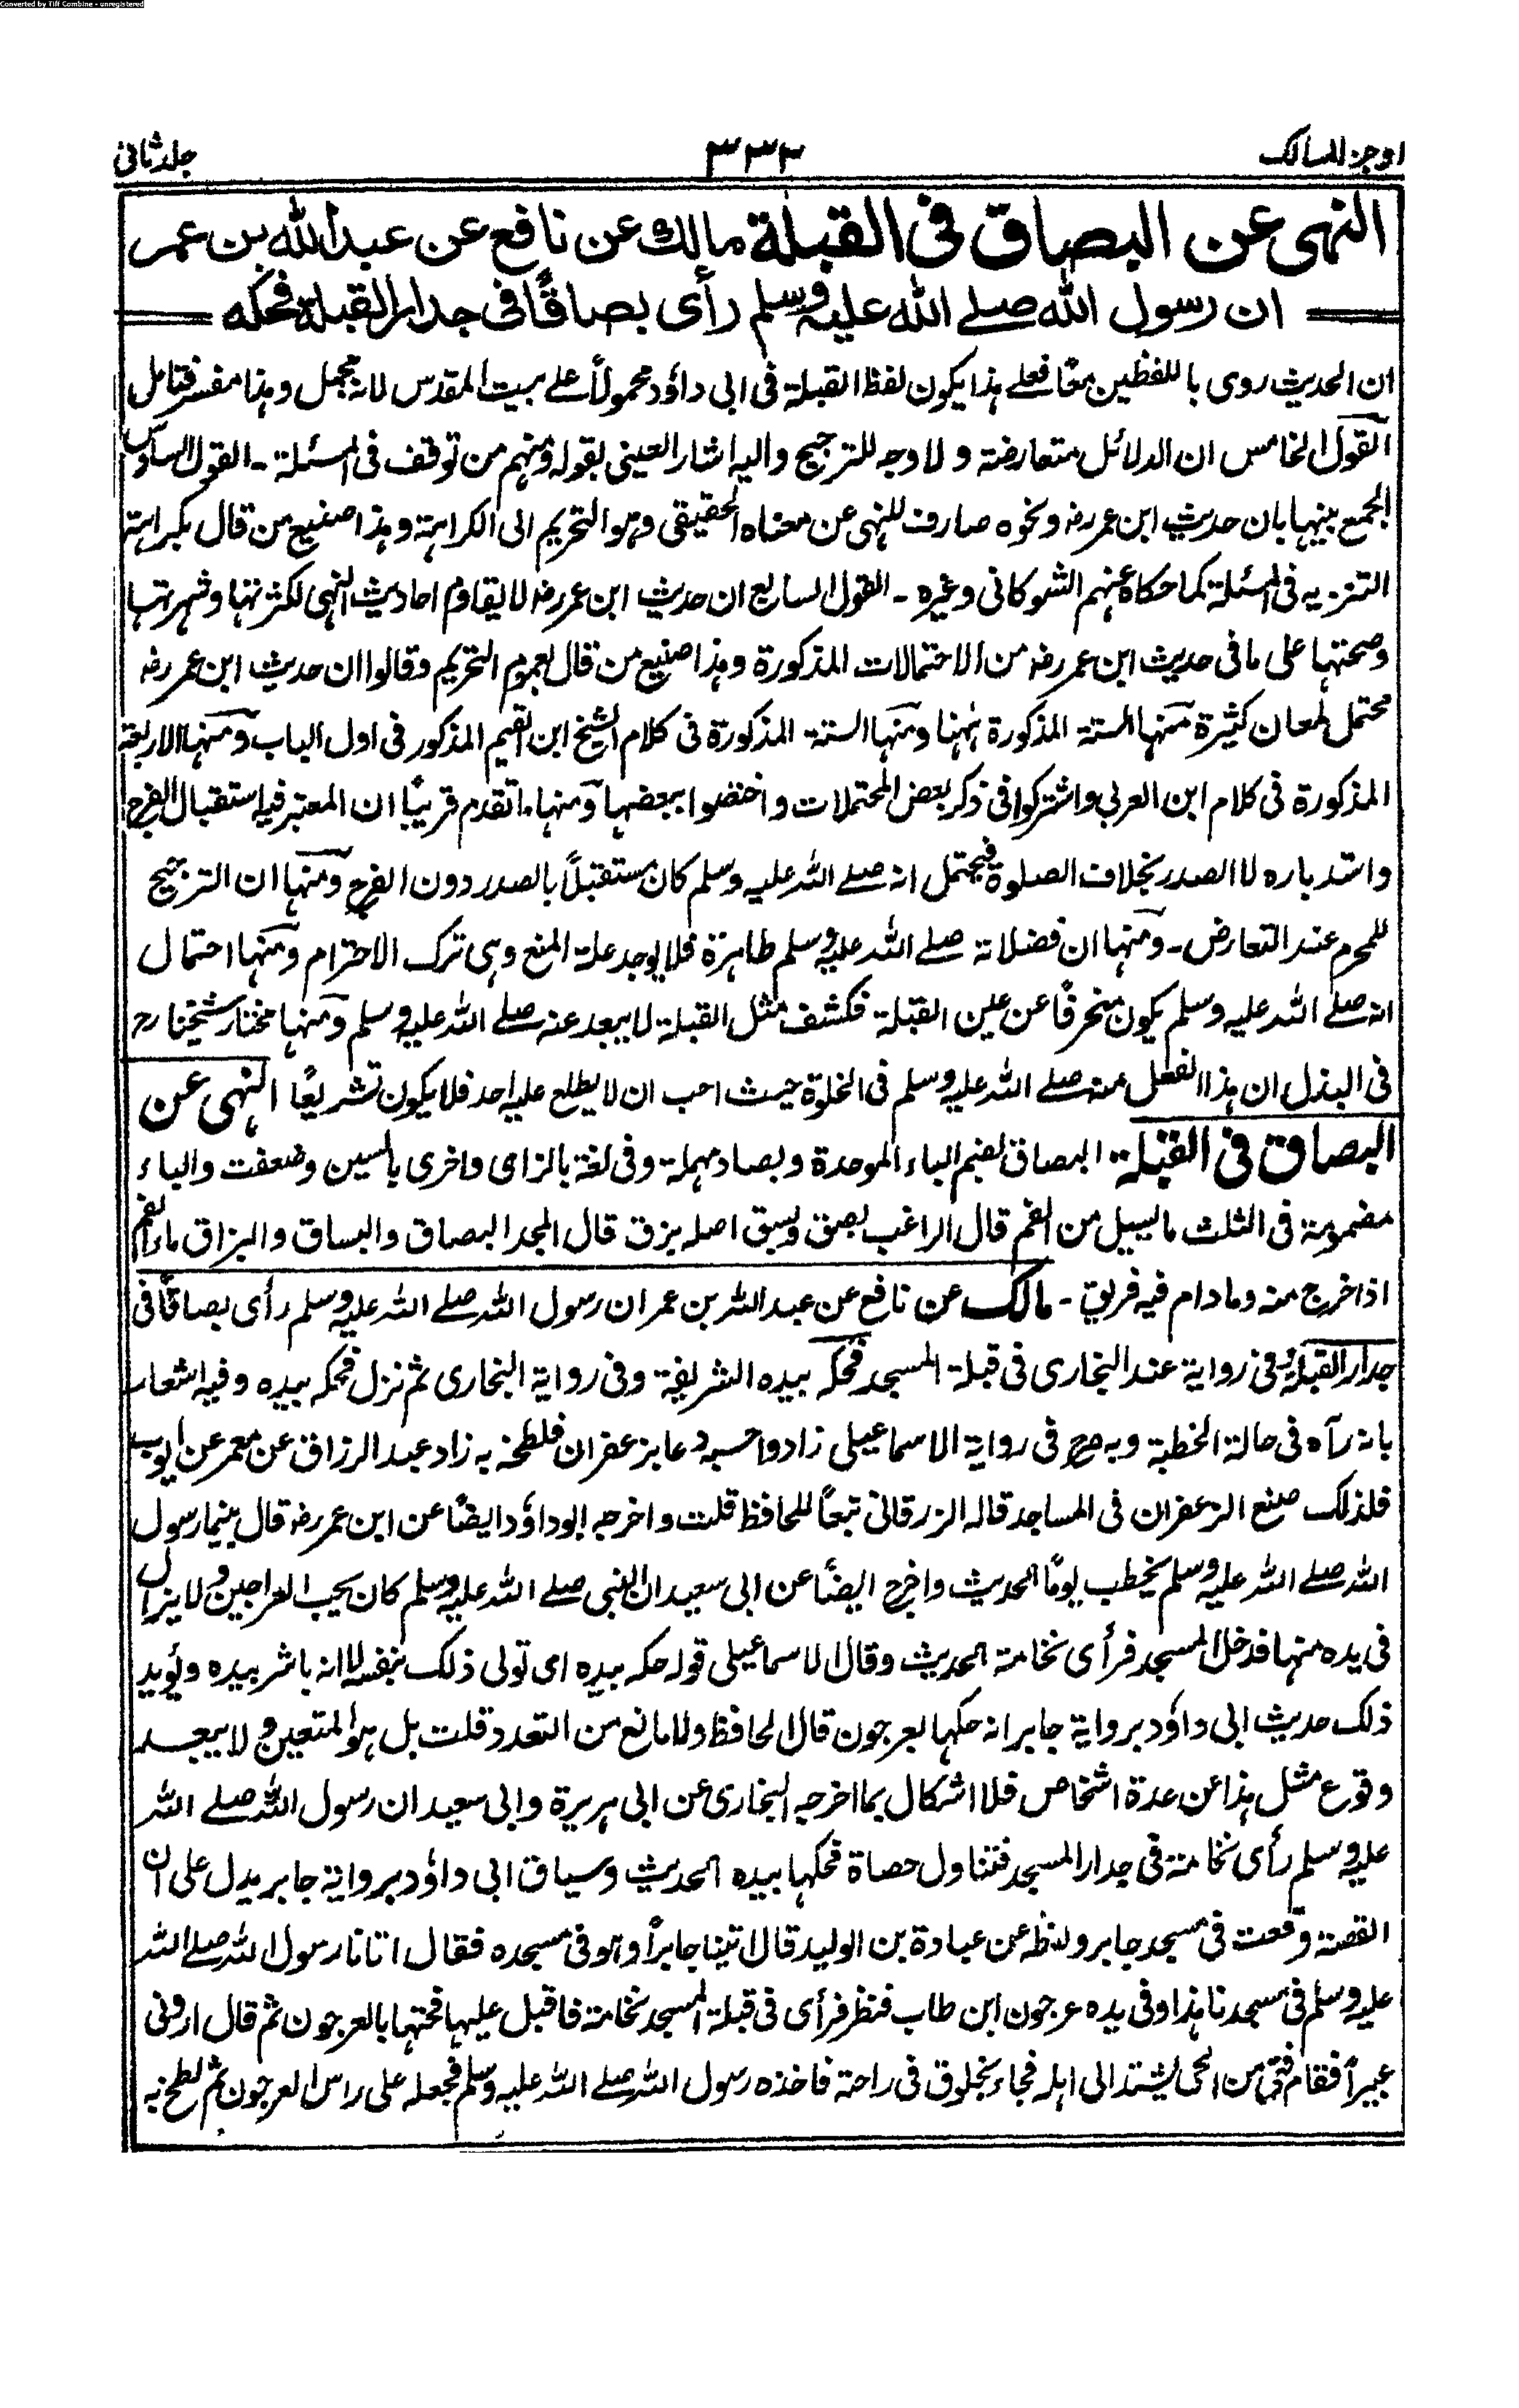 Converted by Tiff Combine - unregistered
اوجز المسالك ٣٣٢ جلد ثانی
النهی عن البصاق فی القبلة مالك عن نافع عن عبد الله بن عمر
ان رسول الله صلے الله علیه وسلم رأی بصاقًا فی جدار القبلة فحکه
ان الحدیث روی باللفظین معًا فعلے هذا یکون لفظ القبلة فی ابی داؤد محمولاً علے بیت المقدس لانه مجمل وهذا مفسر فتامل
القول الخامس ان الدلائل متعارضة ولا وجه للترجیح والیه اشار العینی بقوله ومنهم من توقف فی المسئلة ۔ القول السادس
الجمع بینها بان حدیث ابن عمر رضـ ونحوه صارف للنهی عن معناه الحقیقی وهو التحریم الی الکراهة وهذا صنیع من قال بکراهة
التنزیه فی المسئلة کما حکاه عنهم الشوکانی وغیره ۔ القول السابع ان حدیث ابن عمر رضـ لا یقاوم احادیث النهی لکثرتها وشهرتها
وصحتها علی ما فی حدیث ابن عمر رضـ من الاحتمالات المذکورة وهذا صنیع من قال بعموم التحریم وقالوا ان حدیث ابن عمر رضـ
محتمل لمعان کثیرة منها الستة المذکورة ههنا ومنها الستة المذکورة فی کلام الشیخ ابن القیم المذکور فی اول الباب ومنها الاربعة
المذکورة فی کلام ابن العربی واشترکوا فی ذکر بعض المحتملات واختصوا ببعضها ومنها ما تقدم قریبًا ان المعتبر فیه استقبال الفرج
واستدباره لا الصدر بخلاف الصلوة فیحتمل انه صلے الله علیه وسلم کان مستقبلاً بالصدر دون الفرج ومنها ان الترجیح
للمحرم عند التعارض ۔ ومنها ان فضلاته صلے الله علیه وسلم طاهرة فلا یوجد علة المنع وهی ترک الاحترام ومنها احتمال
انه صلے الله علیه وسلم یکون منحرفًا عن عین القبلة فکشف مثل القبلة لا یبعد عنه صلے الله علیه وسلم ومنها مختار شیخنا رح
فی البذل ان هذا الفعل منه صلے الله علیه وسلم فی الخلوة حیث احب ان لا یطلع علیه احد فلا یکون تشریعًا النهی عن
البصاق فی القبلة البصاق بضم الباء الموحدة وبصاد مهملة وفی لغة بالزای واخری بالسین وضعفت والباء
مضمومة فی الثلث ما یسیل من الفم قال الراغب بصق وبسق اصله بزق قال المجد البصاق والبساق والبزاق ماء الفم
اذا خرج منه وما دام فیه فریق ۔ مالك عن نافع عن عبد الله بن عمر ان رسول الله صلے الله علیه وسلم رأی بصاقًا فی
جدار القبلة وفی روایة عند البخاری فی قبلة المسجد فحکه بیده الشریفة وفی روایة البخاری ثم نزل فحکه بیده وفیه اشعار
بانه رآه فی حالة الخطبة وبه صرح فی روایة الاسماعیلی زاد واحسبه دعا بزعفران فلطخه به زاد عبد الرزاق عن معمر عن ایوب
فلذلک صنع الزعفران فی المساجد قاله الزرقانی تبعًا للحافظ قلت واخرجه ابو داؤد ایضًا عن ابن عمر رضـ قال بینما رسول
الله صلے الله علیه وسلم یخطب یومًا الحدیث واخرج ایضًا عن ابی سعید ان النبی صلے الله علیه وسلم کان یحب العراجین ولا یزال
فی یده منها فدخل المسجد فرأی نخامة الحدیث وقال الاسماعیلی قوله حکه بیده ای تولی ذلک بنفسه لا انه باشر بیده ویؤید
ذلک حدیث ابی داؤد بروایة جابر انه حکها بعرجون قال الحافظ ولا مانع من التعدد قلت بل هو المتعین ولا یبعد
وقوع مثل هذا عن عدة اشخاص فلا اشکال بما اخرجه البخاری عن ابی هریرة وابی سعید ان رسول الله صلے الله
علیه وسلم رأی نخامة فی جدار المسجد فتناول حصاة فحکها بیده الحدیث وسیاق ابی داؤد بروایة جابر یدل علی ان
القصة وقعت فی مسجد جابر ولفظه عن عبادة بن الولید قال اتینا جابراً وهو فی مسجده فقال اتانا رسول الله صلے الله
علیه وسلم فی مسجدنا هذا وفی یده عرجون ابن طاب فنظر فرأی فی قبلة المسجد نخامة فاقبل علیها فحتها بالعرجون ثم قال ارونی
عبیراً فقام فتی من الحی یشتد الی اهله فجاء بخلوق فی راحته فاخذه رسول الله صلے الله علیه وسلم فجعله علی راس العرجون ثم لطخ به